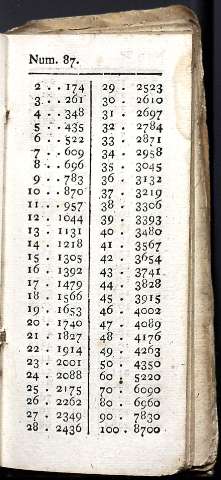 Num. 87.
2 . . 174 29 . 2523
3 . . 261 30 . 2610
4 . . 348 31 . 2697
5 . . 435 32 . 2784
6 . . 522 33 . 2871
7 . . 609 34 . 2958
8 . . 696 35 . 3045
9 . . 783 36 . 3132
10 . . 870 37 . 3219
11 . . 957 38 . 3306
12 . 1044 39 . 3393
13 . 1131 40 . 3480
14 . 1218 41 . 3567
15 . 1305 42 . 3654
16 . 1392 43 . 3741
17 . 1479 44 . 3828
18 . 1566 45 . 3915
19 . 1653 46 . 4002
20 . 1740 47 . 4089
21 . 1827 48 . 4176
22 . 1914 49 . 4263
23 . 2001 50 . 4350
24 . 2088 60 . 5220
25 . 2175 70 . 6090
26 . 2262 80 . 6960
27 . 2349 90 . 7830
28 . 2436 100 . 8700